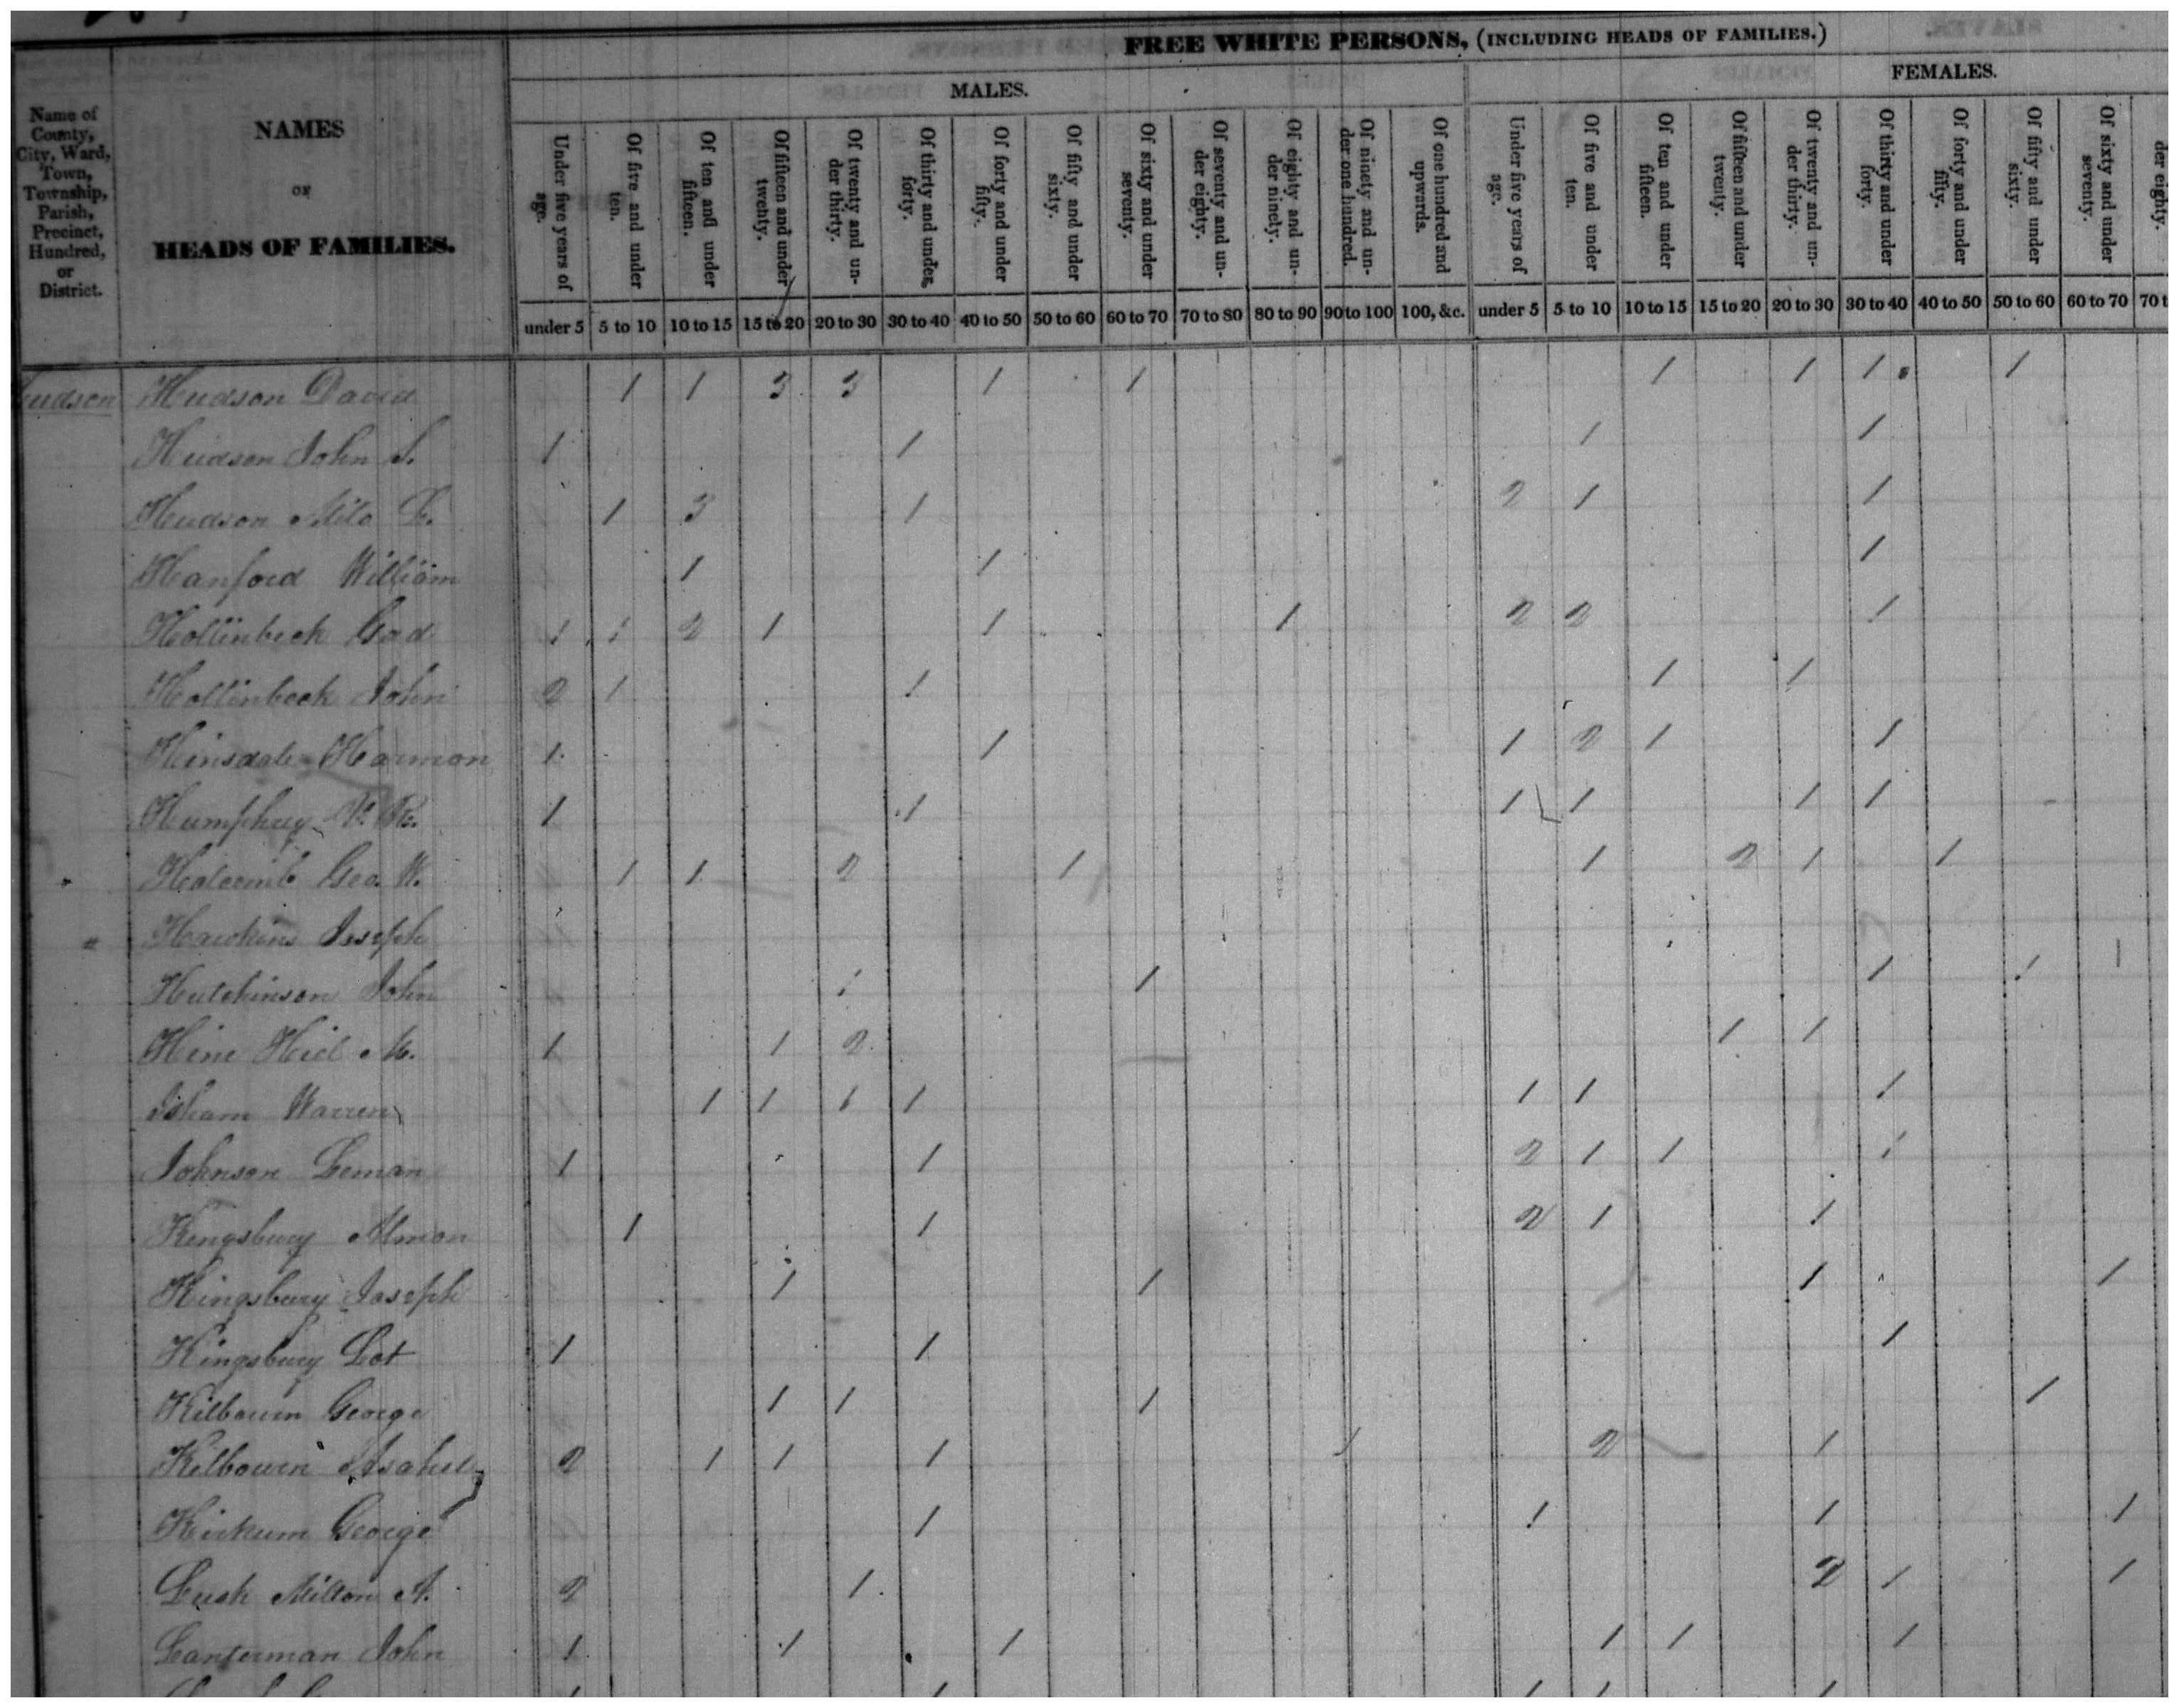 FREE WHITE PERSONS, (INCLUDING HEADS OF FAMILIES.)
MALES. FEMALES.
Name of County, City, Ward, Town, Township, Parish, Precinct, Hundred, or District.
NAMES
OF
HEADS OF FAMILIES.
Under five years of age. Of five and under ten. Of ten and under fifteen. Of fifteen and under twenty. Of twenty and under thirty. Of thirty and under forty. Of forty and under fifty. Of fifty and under sixty. Of sixty and under seventy. Of seventy and under eighty. Of eighty and under ninety. Of ninety and under one hundred. Of one hundred and upwards. Under five years of age. Of five and under ten. Of ten and under fifteen. Of fifteen and under twenty. Of twenty and under thirty. Of thirty and under forty. Of forty and under fifty. Of fifty and under sixty. Of sixty and under seventy. der eighty.
under 5 5 to 10 10 to 15 15 to 20 20 to 30 30 to 40 40 to 50 50 to 60 60 to 70 70 to 80 80 to 90 90 to 100 100, &c. under 5 5 to 10 10 to 15 15 to 20 20 to 30 30 to 40 40 to 50 50 to 60 60 to 70 70 t
Hudson Hudson David 1 1 3 3 1 1 1 1 1 1
Hudson John S. 1 1 1 1
Hudson Milo 1 3 1 2 1 1
Hanford William 1 1 1
Hollinbeck Gad 1 1 2 1 1 1 2 2 1
Hollinbeck John 2 1 1 1 1
Hinsdale Harmon 1 1 1 2 1 1
Humphrey 1 1 1 1 1 1
Holcomb Geo. W. 1 1 2 1 1 2 1 1
" Hawkins Joseph
Hutchinson John 1 1 1 1 1
Hine Hiel M. 1 1 2 1 1
Isham Warren 1 1 1 1 1 1 1
Johnson Leman 1 1 2 1 1 1
Kingsbury Almon 1 1 2 1 1
Kingsbury Joseph 1 1 1 1
Kingsbury Lot 1 1 1
Kilbourn George 1 1 1 1
Kilbourn Asahel 2 1 1 1 1 2 1
Kirkum George 1 1 1 1
Lusk Milton A. 2 1 2 1 1
Lanterman John 1 1 1 1 1 1